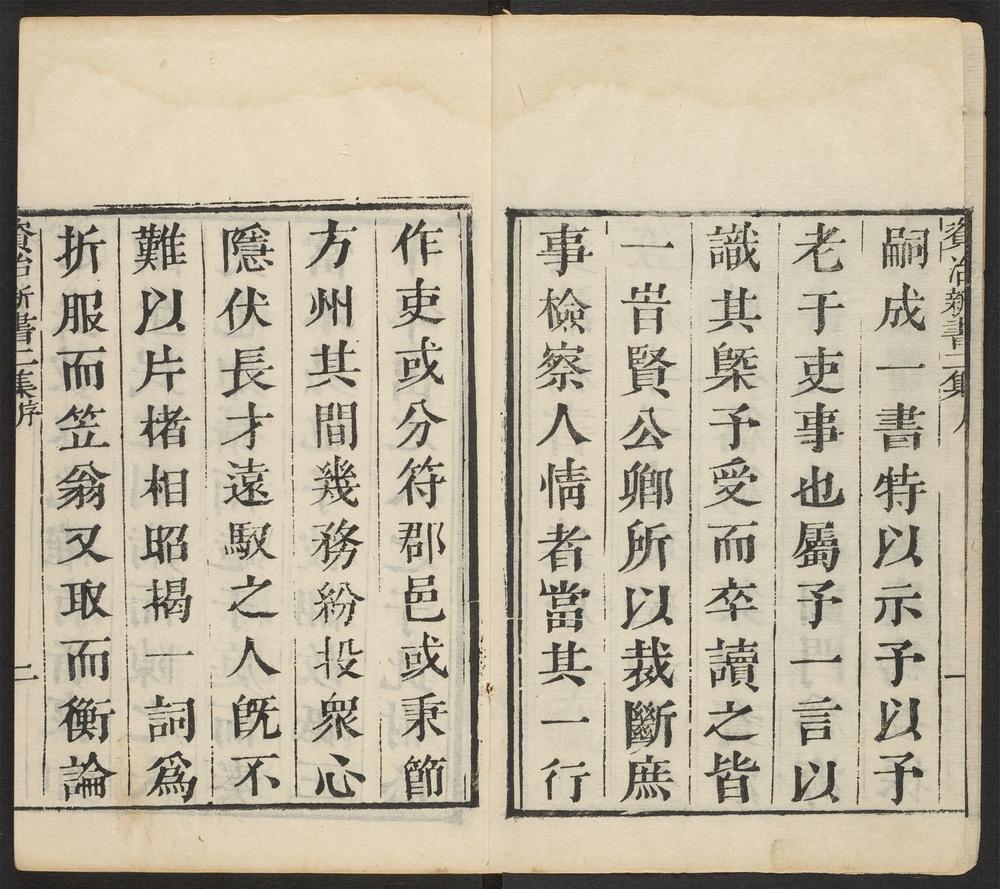 資治新書二集
一
嗣成一書特以示予以予
老于吏事也屬予一言以
識其槩予受而卒讀之皆
一旹賢公卿所以裁斷庶
事檢察人情者當其一行
作吏或分符郡邑或秉節
方州其間幾務紛投衆心
隱伏長才遠馭之人旣不
難以片楮相昭揭一詞爲
折服而笠翁又取而衡論
資治新書二集序
二